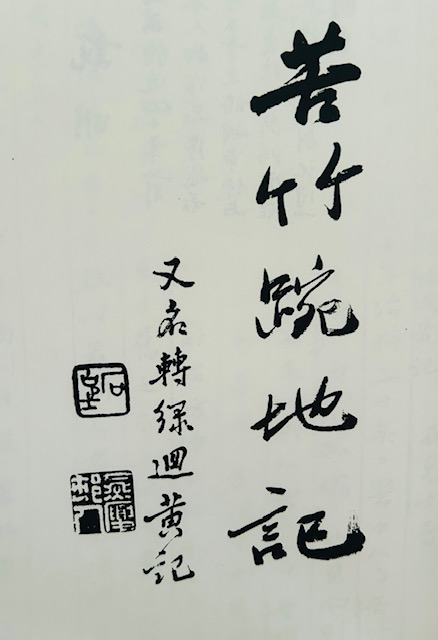 苦竹踠地記
又名轉綠迴黃記